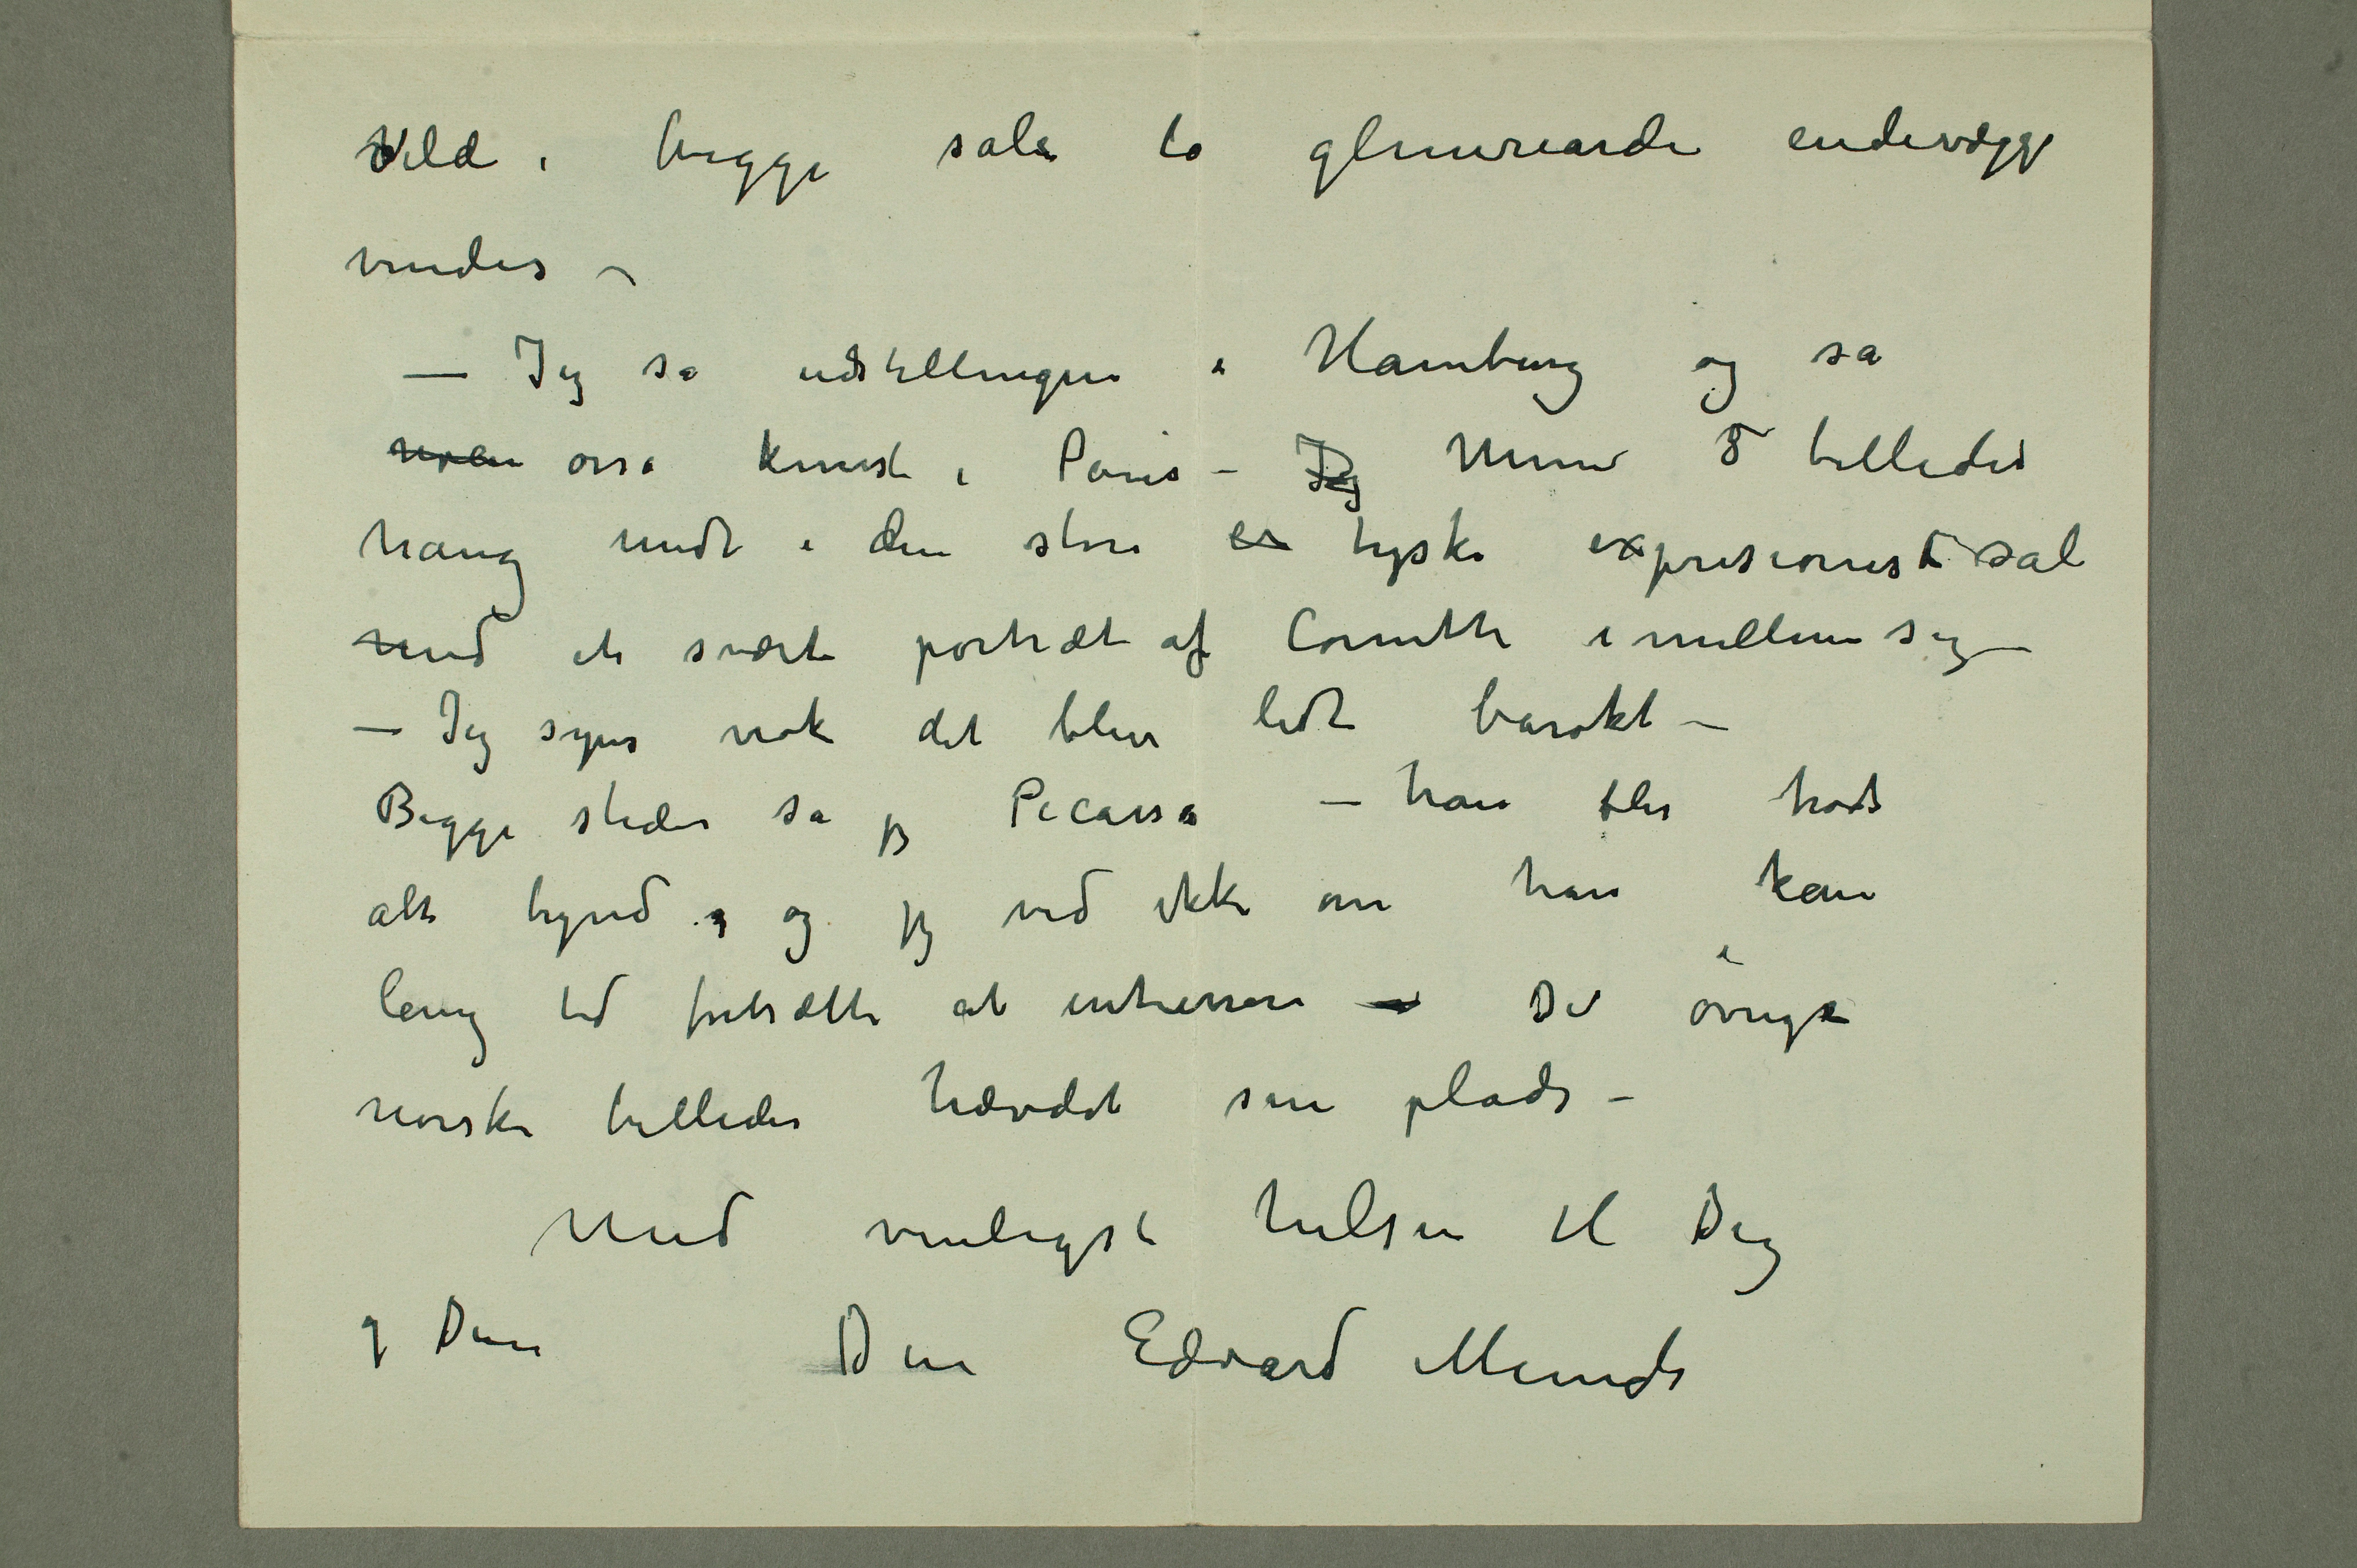 Vilde i begge sale to glimrende endevægge
vindes –
– Jeg så udstillingen i Hamburg og så
noen osså kunst i Paris – Jeg Mine 5 billeder
hang midt i den store en tyske expresionist sal
med et svært portræt af Corinth imellem sig –
– Jeg synes nok det blev lidt barokt –
Begge steder så jeg Picasso – han blir trods
alt tynd og jeg ved ikke om han kan
lang tid fortsætte at intressere – De i øvrige
norske billeder hævdet sin plads –
Med venligst hilsen til Dig
og Dine Din Edvard Munch